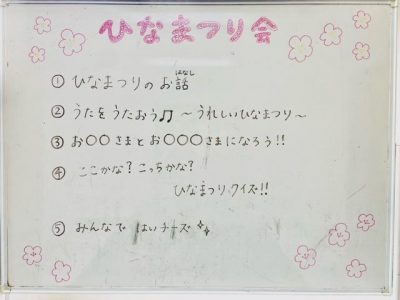 ひなまつり会
① ひなまつりの お話
はなし
② うたをうたおう♫ ～うれしいひなまつり～
③ お〇〇さまとお〇〇〇さまになろう!!
④ ここかな? こっちかな?
ひなまつりクイズ!!
⑤ みんなで はいチーズ